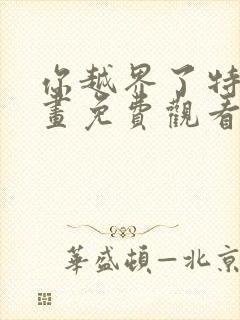 你越界了特
畫免費觀看
華盛頓—北京